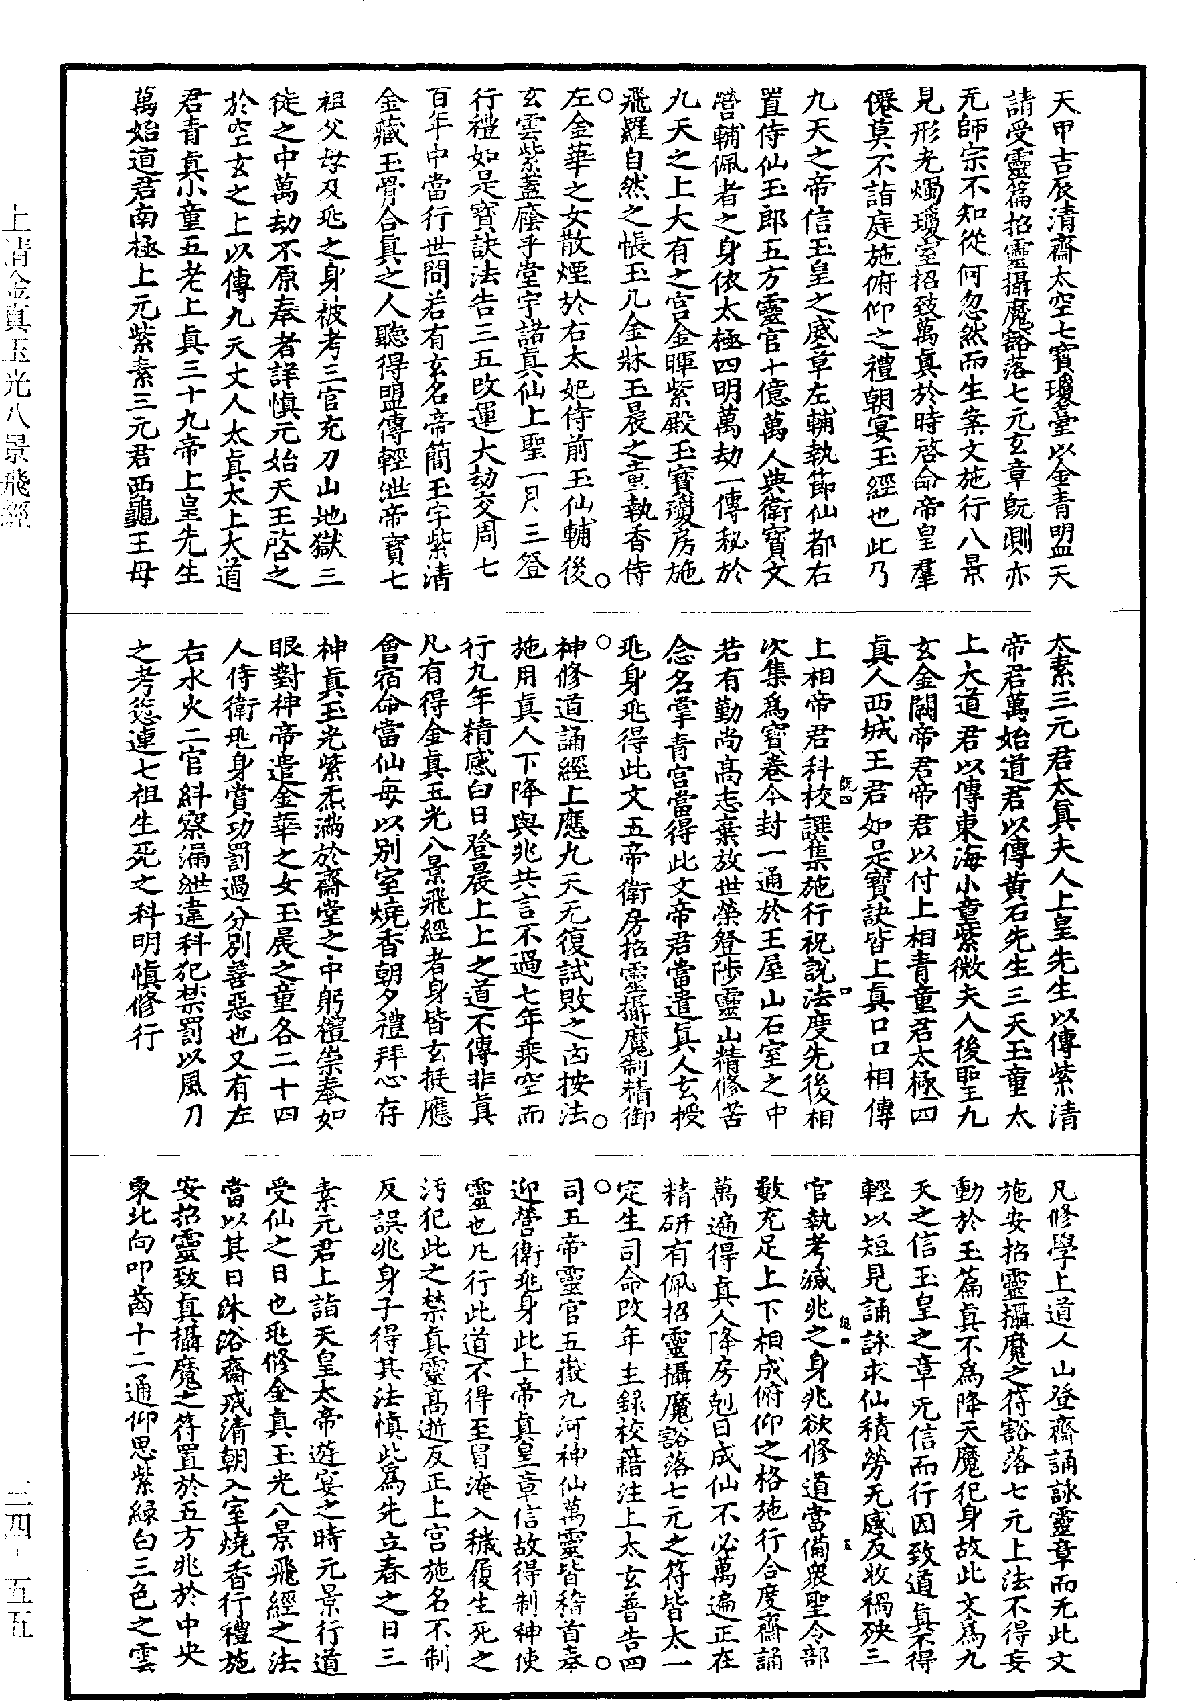 天甲吉辰清齋太空七寶瓊臺以金青盟天
請受靈篇招靈攝魔豁落七元玄章旣測亦
无師宗不知從何忽然而生案文施行八景
見形光燭瓊室招致萬真於時啓命帝皇羣
僊莫不詣庭施俯仰之禮朝宴玉經也此乃
九天之帝信玉皇之威章左輔執節仙都右
置侍仙玉郎五方靈官十億萬人典衛寶文
營輔佩者之身依太極四明萬劫一傳秘於
九天之上大有之宮金暉紫殿玉寶瓊房施
飛羅自然之帳玉几金牀玉晨之童執香侍
左金華之女散煙於右太妃侍前玉仙輔後
玄雲紫蓋廕乎堂宇諸真仙上聖一月三登
行禮如是寶訣法告三五改運大劫交周七
百年中當行世間若有玄名帝簡玉字紫清
金藏玉骨合真之人聽得盟傳輕泄帝寶七
祖父母及兆之身被考三官充刀山地獄三
徒之中萬劫不原奉者詳慎元始天王啓之
於空玄之上以傳九天丈人太真太上大道
君青真小童五老上真三十九帝上皇先生
萬始道君南極上元紫素三元君西龜王母
太素三元君太真夫人上皇先生以傳紫清
帝君萬始道君以傳黄石先生三天玉童太
上大道君以傳東海小童紫微夫人後聖九
玄金闕帝君帝君以付上相青童君太極四
真人西城王君如是寶訣皆上真口口相傳
上相帝君科校譔集施行祝說法度先後相
次集爲寶卷今封一通於王屋山石室之中
若有勤尚高志棄放世榮登陟靈山精修苦
念名掌青宮當得此文帝君當遣真人玄授
兆身兆得此文五帝衛房招靈攝魔制精御
神修道誦經上應九天无復試敗之凶按法
施用真人下降與兆共言不過七年乘空而
行九年精感白日登晨上上之道不傳非真
凡有得金真玉光八景飛經者身皆玄挺應
會宿命當仙每以別室燒香朝夕禮拜心存
神真玉光紫炁滿於齋堂之中躬禮崇奉如
眼對神帝遣金華之女玉晨之童各二十四
人侍衛兆身賞功罰過分別善惡也又有左
右水火二官糾察漏泄違科犯禁罰以風刀
之考愆連七祖生死之科明慎修行
凡修學上道人山登齋誦詠靈章而无此文
施安招靈攝魔之符豁落七元上法不得妄
動於玉篇真不為降天魔犯身故此文爲九
天之信玉皇之章无信而行因致道真不得
輕以短見誦詠求仙積勞无感反收禍殃三
官執考滅兆之身兆欲修道當備衆聖令部
數充足上下相成俯仰之格施行合度齋誦
萬遍得真人降房剋日成仙不必萬遍正在
精研有佩招靈攝魔豁落七元之符皆太一
定生司命改年主録校籍注上太玄普告四
司五帝靈官五嶽九河神仙萬靈皆稽首奉
迎營衛兆身此上帝真皇章信故得制神使
靈也凡行此道不得至冒淹入穢履生死之
汚犯此之禁真靈高逝反正上宮施名不制
反誤兆身子得其法慎此爲先立春之日三
素元君上詣天皇太帝遊宴之時元景行道
受仙之日也兆修金真玉光八景飛經之法
當以其日沐浴齋戒清朝入室燒香行禮施
安招靈致真攝魔之符置於五方兆於中央
東北向叩齒十二通仰思紫綠白三色之雲
上清金真玉光八景飛經
三四-五五